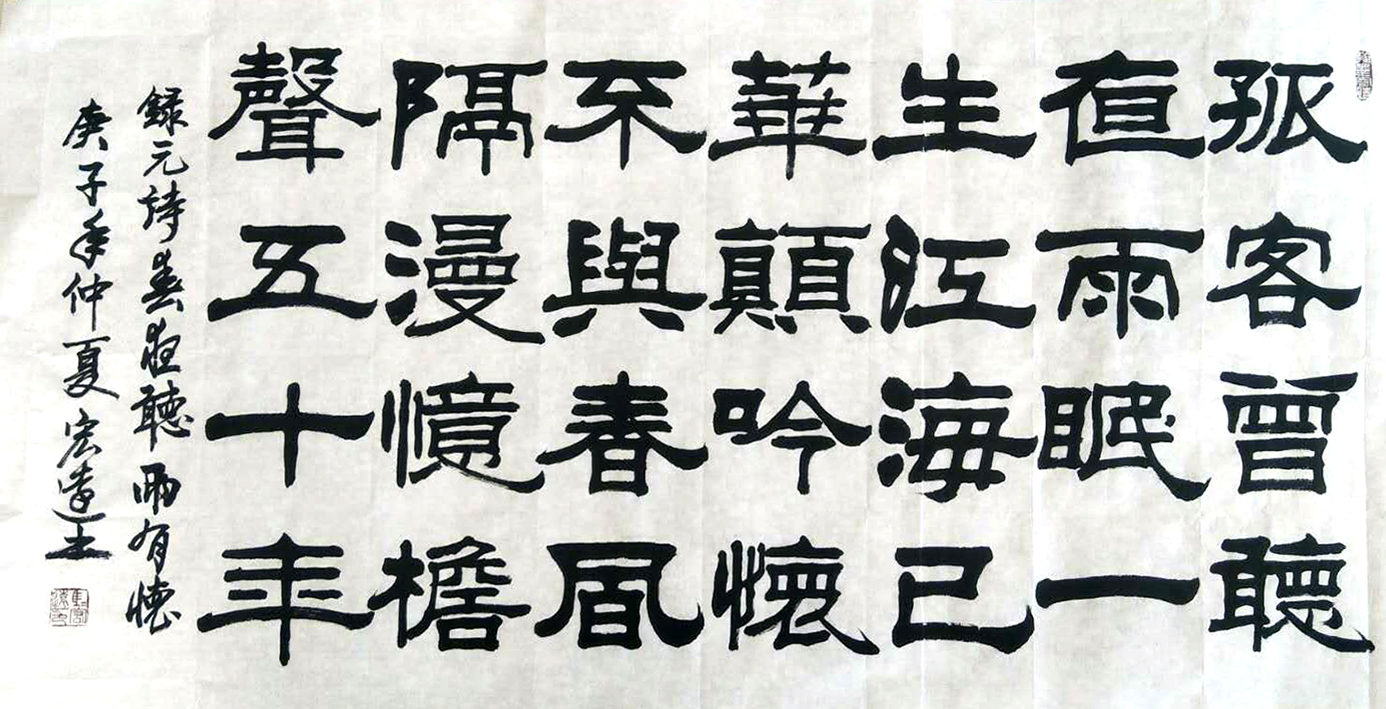 孤客曾聽
夜雨眠一
生江海已
華顛吟懷
不與春風
隔漫憶檐
聲五十年
録元詩春夜聽雨有懷
庚子年仲夏